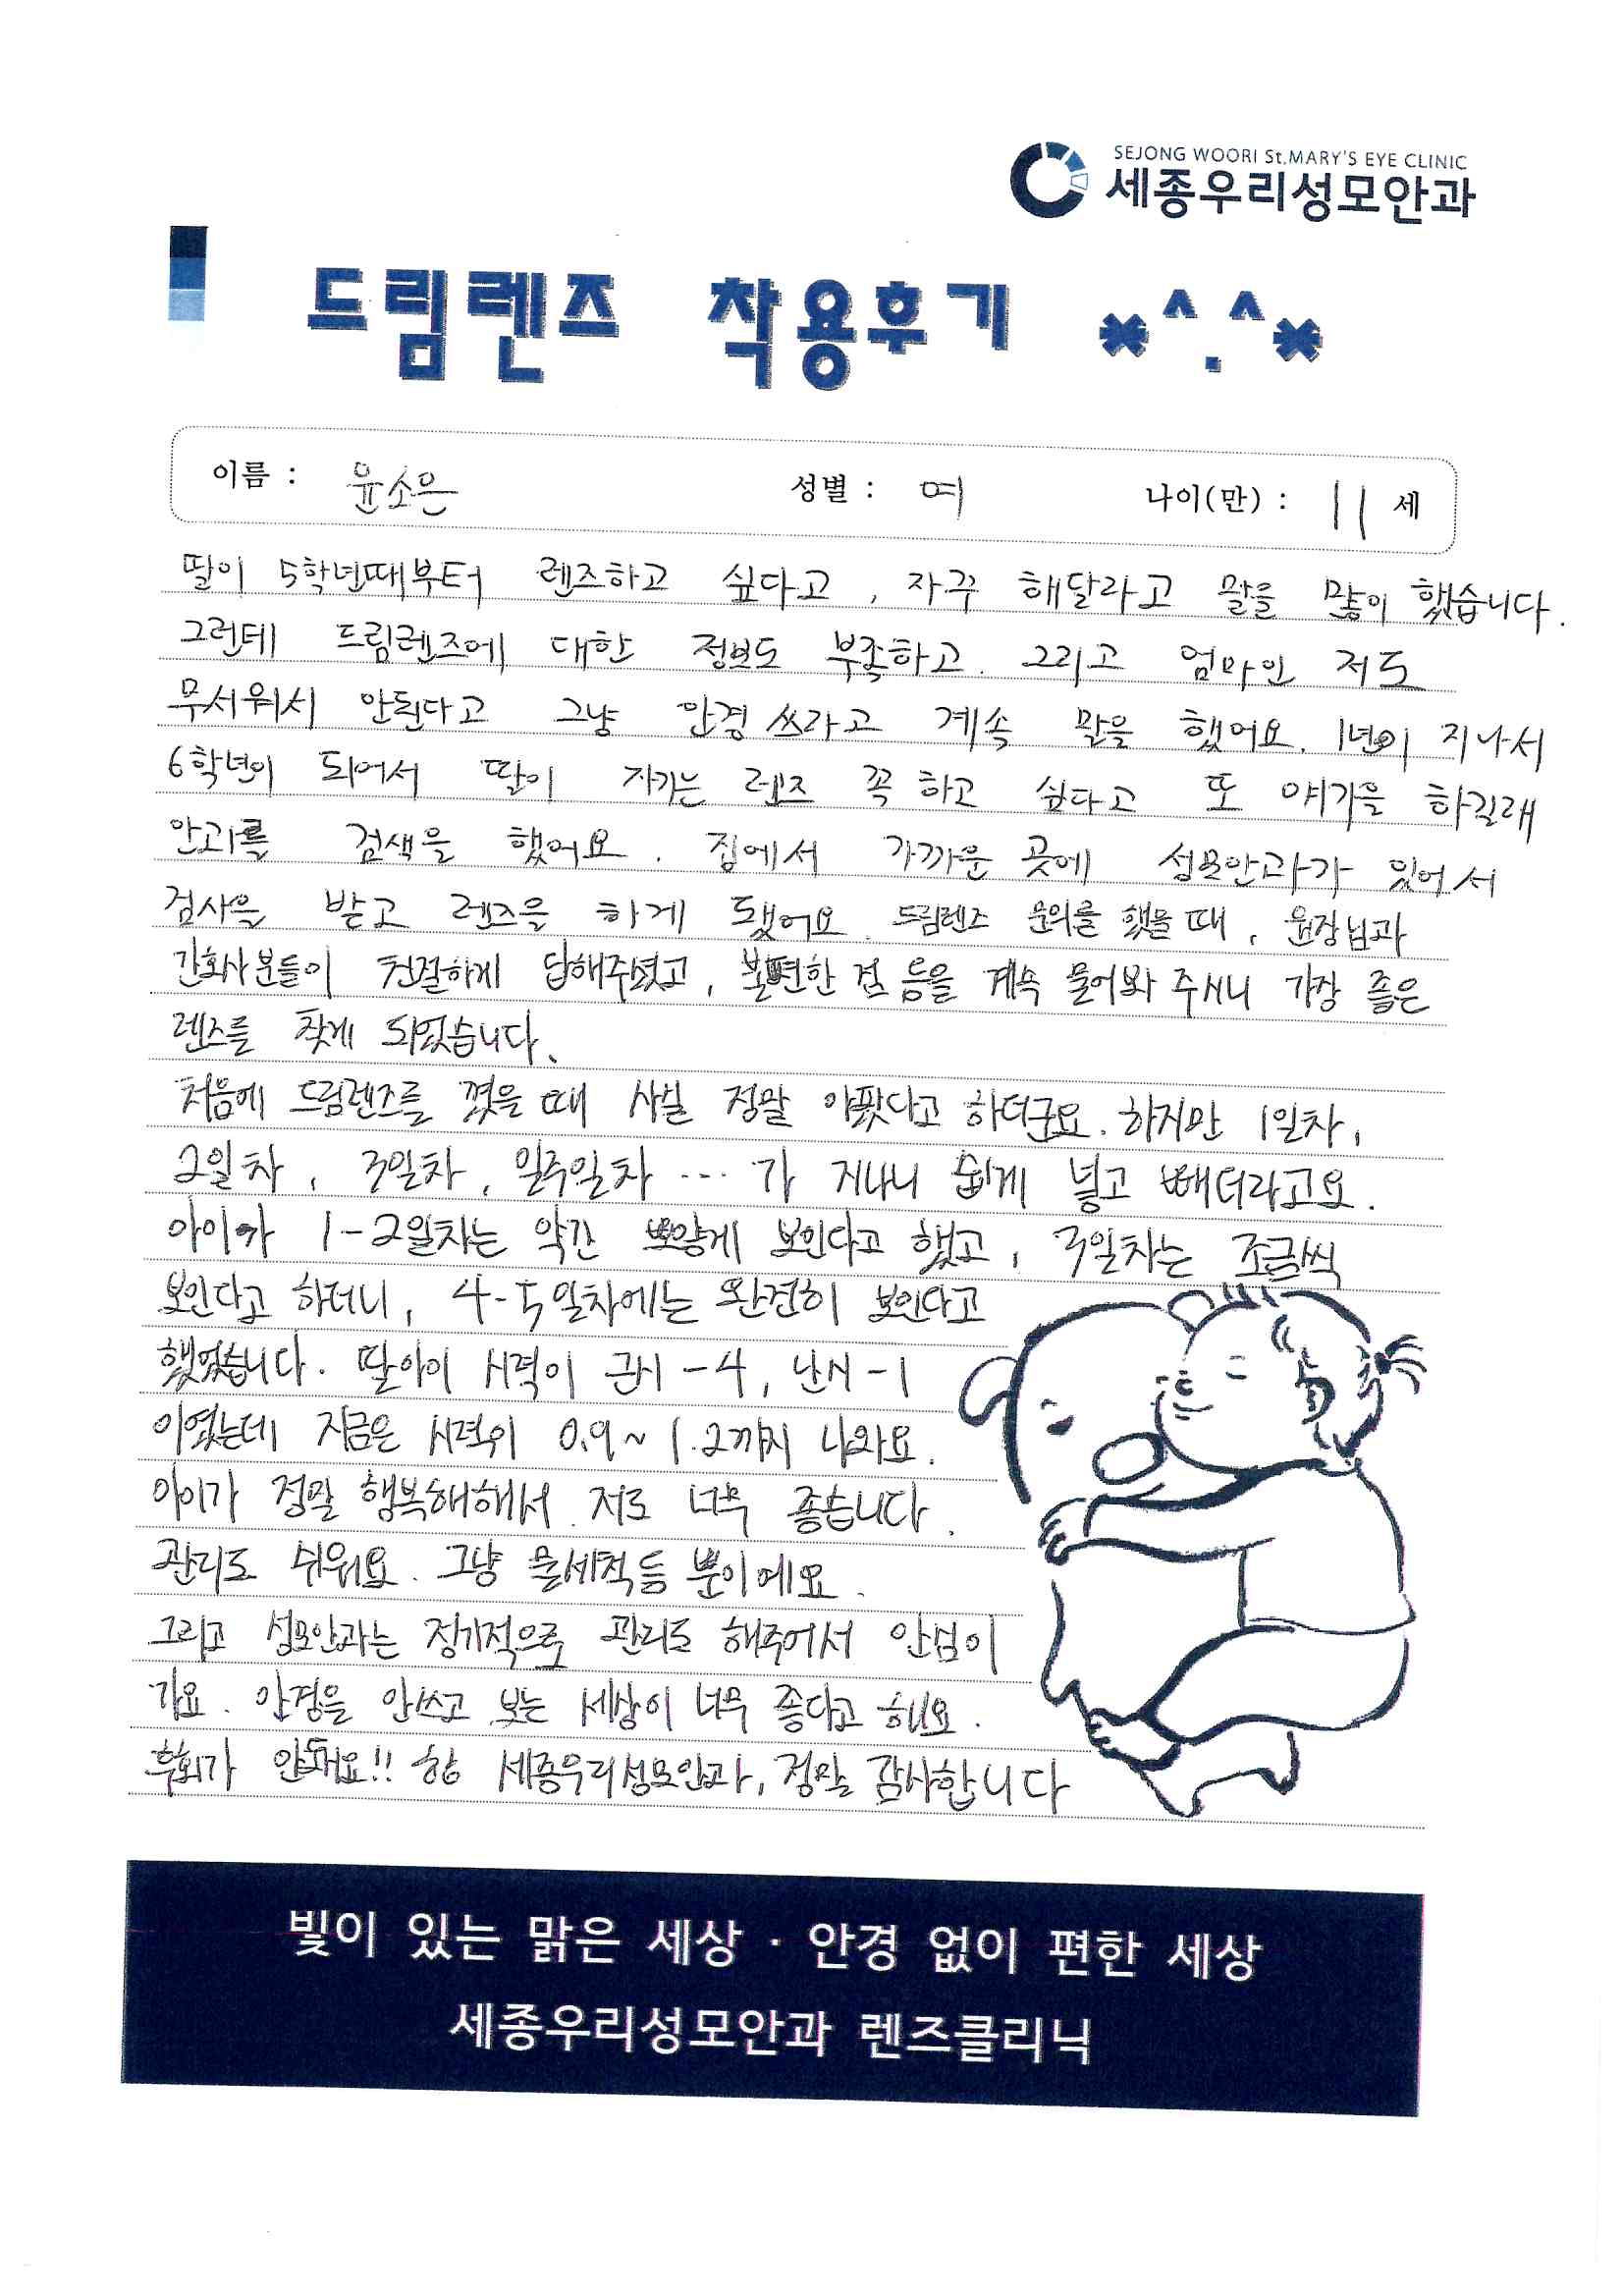 SEJONG WOORI St.MARY'S EYE CLINIC
세종우리성모안과
드림렌즈 착용후기 *^.^*
이름 : 윤소은 성별 : 여 나이(만) : 11 세
딸이 5학년때부터 렌즈하고 싶다고, 자꾸 해달라고 말을 많이 했습니다.
그런데 드림렌즈에 대한 정보도 부족하고. 그리고 엄마인 저도
무서워서 안된다고 그냥 안경쓰라고 계속 말을 했어요. 1년이 지나서
6학년이 되어서 딸이 자기는 렌즈 꼭 하고 싶다고 또 얘기를 하길래
안과를 검색을 했어요. 집에서 가까운 곳에 성모안과가 있어서
검사를 받고 렌즈를 하게 됐어요. 드림렌즈 문의를 했을 때, 원장님과
간호사분들이 친절하게 답해주셨고, 불편한 걸 등을 계속 물어봐 주시니 가장 좋은
렌즈를 찾게 되었습니다.
처음에 드림렌즈를 꼈을 때 사실 정말 아팠다고 하더군요. 하지만 1일차,
2일차, 3일차, 일주일차 … 가 지나니 쉽게 넣고 빼더라고요.
아이가 1-2일차는 약간 뿌얗게 보인다고 했고, 3일차는 조금씩
보인다고 하더니, 4-5일차에는 완전히 보인다고
했었습니다. 딸아이 시력이 근시 -4, 난시 -1
이였는데 지금은 시력이 0.9~1.2까지 나와요.
아이가 정말 행복해해서 저도 너무 좋습니다.
관리도 쉬워요. 그냥 물세척등 뿐이에요.
그리고 성모안과는 정기적으로 관리도 해주어서 안심이
가요. 안경을 안쓰고 보는 세상이 너무 좋다고 해요.
후회가 안돼요!! 항상 세종우리성모안과, 정말 감사합니다
빛이 있는 맑은 세상 · 안경 없이 편한 세상
세종우리성모안과 렌즈클리닉